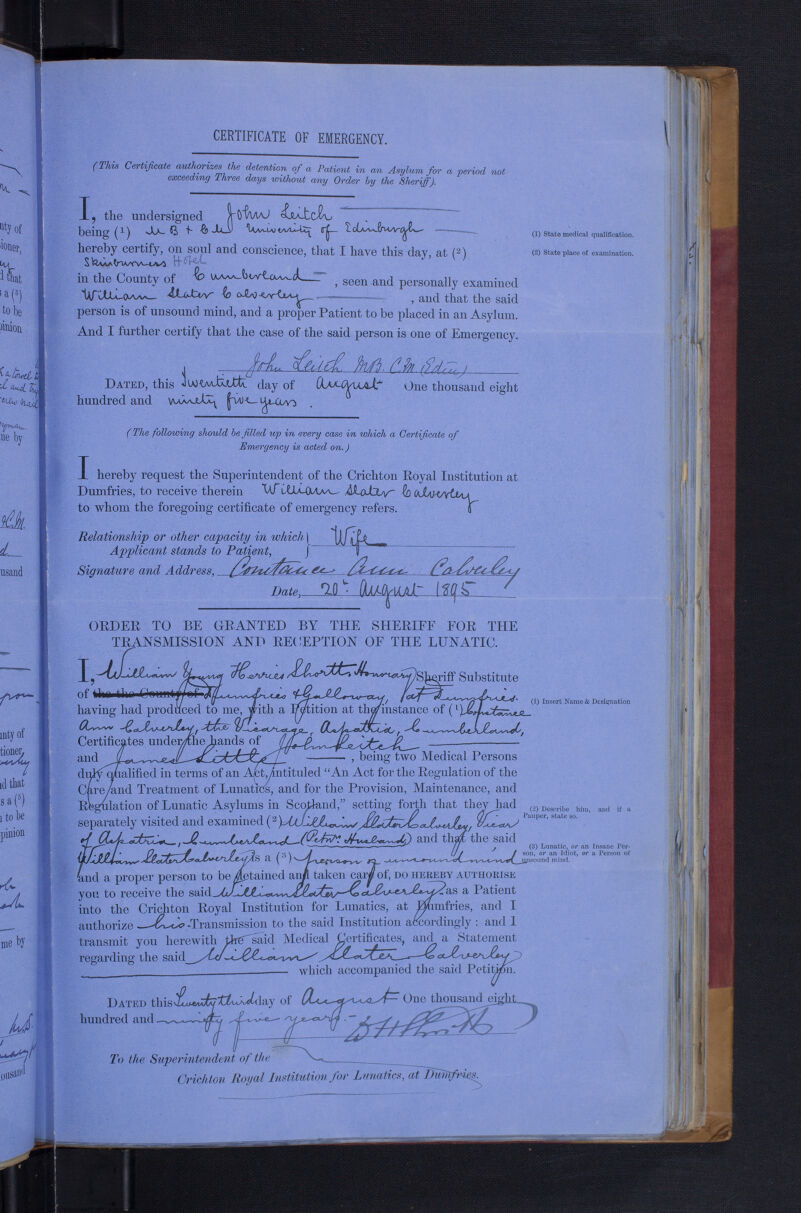 CERTIFICATE OF EMERGENCY.
(This Certificate authorizes the detention of a Patient in an Asylum for a period not
exceeding Three days without any Order by the Sheriff).
I, the undersigned John Leitch
being (1) M B & C M University of Edinburgh
hereby certify, on soul and conscience, that I have this day, at (2)
Skinburness Hotel
in the County of Cumberland , seen and personally examined
William Slater Calverley , and that the said
person is of unsound mind, and a proper Patient to be placed in an Asylum.
And I further certify that the case of the said person is one of Emergency.
John Leitch MB. C.M. (Edin)
DATED, this Twentieth day of August One thousand eight
hundred and ninety five years .
(The following should be filled up in every case in which a Certificate of
Emergency is acted on.)
I hereby request the Superintendent of the Crichton Royal Institution at
Dumfries, to receive therein William Slater Calverley
to whom the foregoing certificate of emergency refers.
Relationship or other capacity in which
Applicant stands to Patient, } Wife
Signature and Address, Constance Ann Calverley
Date, 20th August 1895
ORDER TO BE GRANTED BY THE SHERIFF FOR THE
TRANSMISSION AND RECEPTION OF THE LUNATIC.
I, William Young Herries Shortt, Honorary Sheriff Substitute
of the the County of Dumfries & Galloway, at Dumfries.
having had produced to me, with a Petition at the instance of (1) Constance
Ann Calverley, the Vicarage, Aspatria, Cumberland,
Certificates under the hands of John Leitch
and James Little , being two Medical Persons
duly qualified in terms of an Act, intituled "An Act for the Regulation of the
Care and Treatment of Lunatics, and for the Provision, Maintenance, and
Regulation of Lunatic Asylums in Scotland," setting forth that they had
separately visited and examined (2) William Slater Calverley, Vicar
of Aspatria, Cumberland (Petrs. Husband) and that the said
William Slater Calverley is a (3) person of unsound mind
and a proper person to be detained and taken care of, DO HEREBY AUTHORISE
you to receive the said William Slater Calverley as a Patient
into the Crichton Royal Institution for Lunatics, at Dumfries, and I
authorize his Transmission to the said Institution accordingly : and I
transmit you herewith the said Medical Certificates, and a Statement
regarding the said William Slater Calverley
which accompanied the said Petition.
DATED this Twenty third day of August One thousand eight
hundred and ninety five years.
To the Superintendent of the
Crichton Royal Institution for Lunatics, at Dumfries.
(1) State medical qualification.
(2) State place of examination.
(1) Insert Name & Designation
(2) Describe him, and if a
Pauper, state so.
(3) Lunatic, or an Insane Per-
son, or an Idiot, or a Person of
unsound mind.